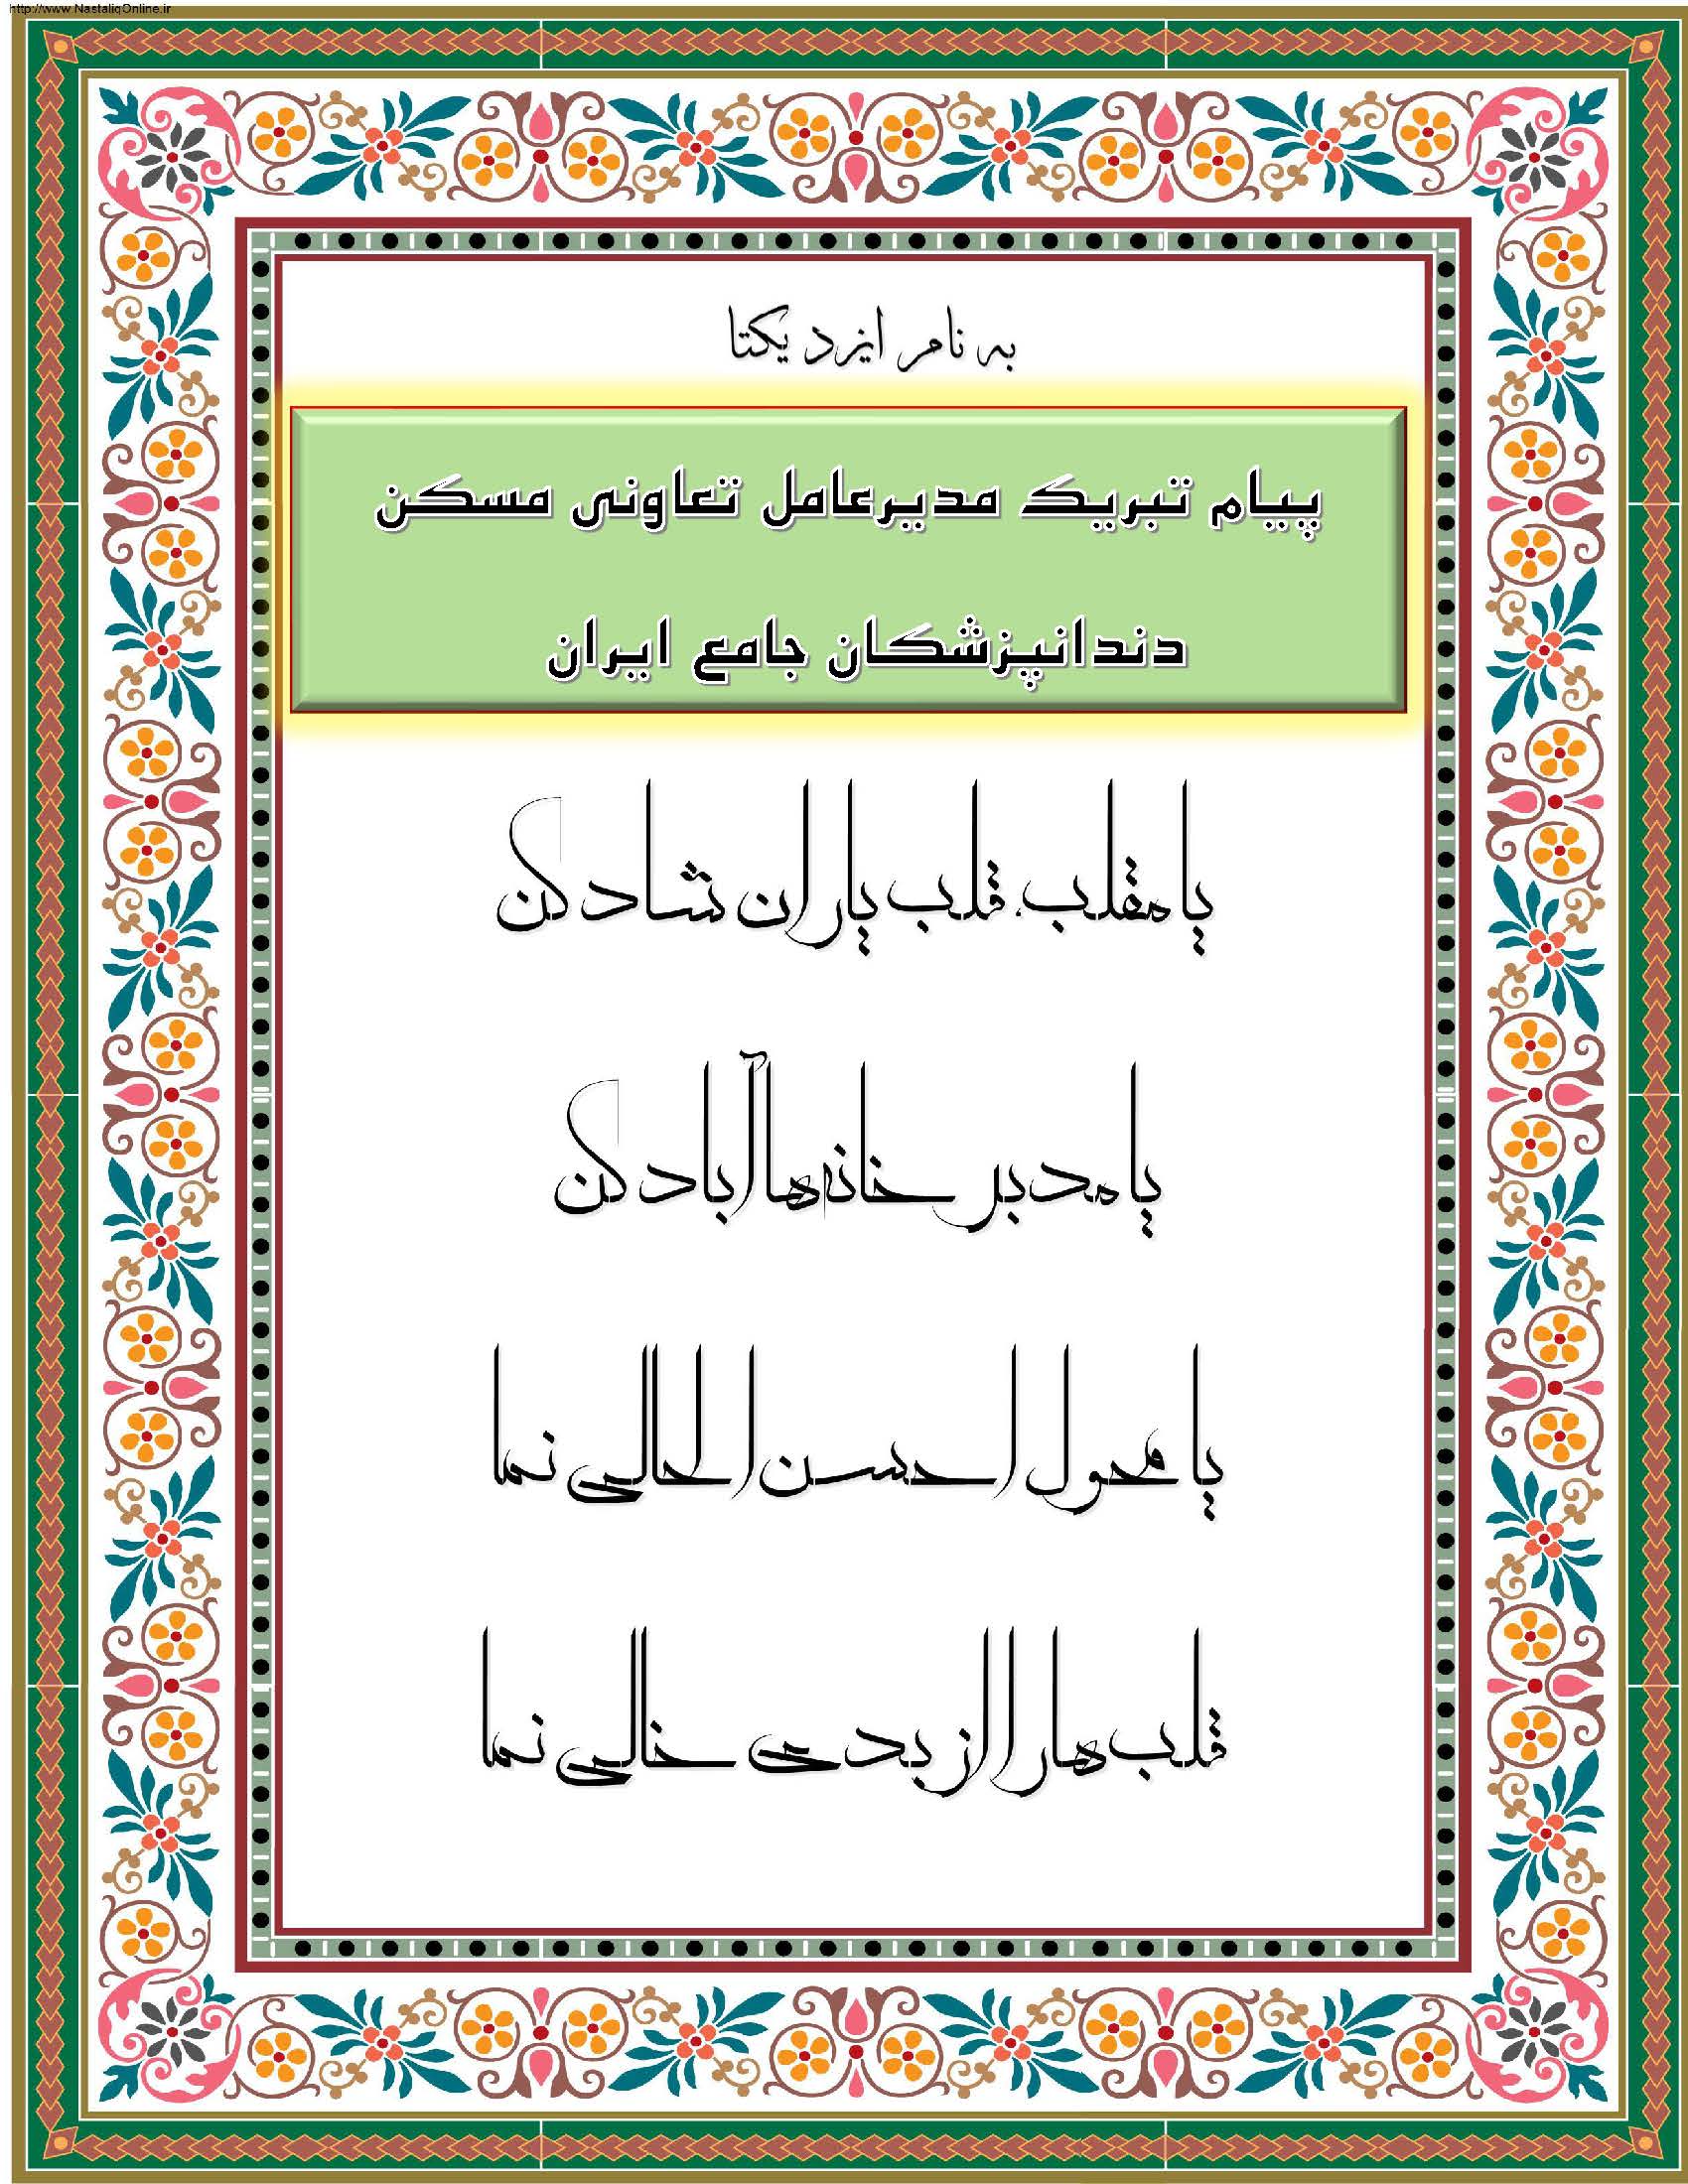 http://www.NastaliqOnline.ir
به نام ایزد یکتا
پیام تبریک مدیرعامل تعاونی مسکن
دندانپزشکان جامع ایران
یا مقلب، قلب یاران شاد کن
یا مدبر خانه‌ها آباد کن
یا محول احسن الحالی نما
قلب‌ها را از بدی خالی نما